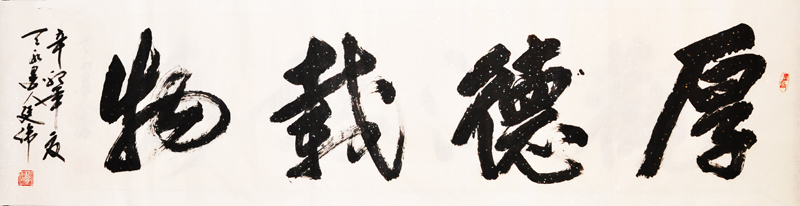 厚德載物
辛卯年夏